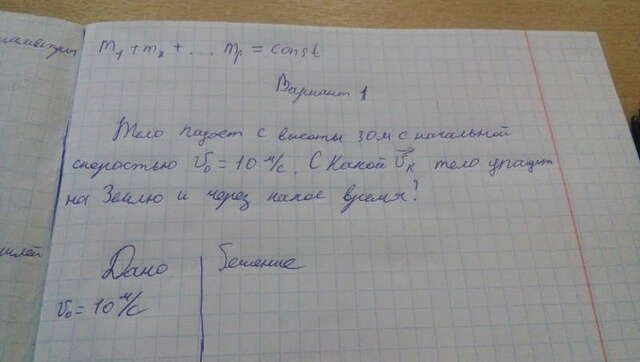 m₁ + m₂ + ... mₚ = const
Вариант 1
Тело падает с высоты 30 м с начальной
скоростью v₀ = 10 м/с. С какой v⃗ₖ тело упадёт
на Землю и через какое время?
Дано
Решение
v₀ = 10 м/с